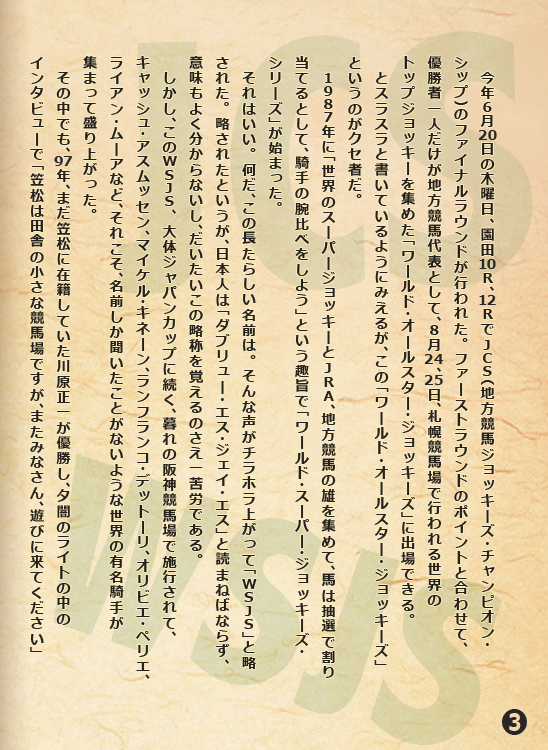 JCS
WSJS
今年6月20日の木曜日、園田10R、12RでJCS(地方競馬ジョッキーズ・チャンピオン・
シップ)のファイナルラウンドが行われた。ファーストラウンドのポイントと合わせて、
優勝者一人だけが地方競馬代表として、8月24、25日、札幌競馬場で行われる世界の
トップジョッキーを集めた「ワールド・オールスター・ジョッキーズ」に出場できる。
とスラスラと書いているようにみえるが、この「ワールド・オールスター・ジョッキーズ」
というのがクセ者だ。
1987年に「世界のスーパージョッキーとJRA、地方競馬の雄を集めて、馬は抽選で割り
当てるとして、騎手の腕比べをしよう」という趣旨で「ワールド・スーパー・ジョッキーズ・
シリーズ」が始まった。
それはいい。何だ、この長たらしい名前は。そんな声がチラホラ上がって「WSJS」と略
された。略されたというが、日本人は「ダブリュー・エス・ジェイ・エス」と読まねばならず、
意味もよく分からないし、だいたいこの略称を覚えるのさえ一苦労である。
しかし、このWSJS、大体ジャパンカップに続く、暮れの阪神競馬場で施行されて、
キャッシュ・アスムッセン、マイケル・キネーン、ランフランコ・デットーリ、オリビエ・ペリエ、
ライアン・ムーアなど、それこそ、名前しか聞いたことがないような世界の有名騎手が
集まって盛り上がった。
その中でも、97年、まだ笠松に在籍していた川原正一が優勝し、夕闇のライトの中の
インタビューで「笠松は田舎の小さな競馬場ですが、またみなさん、遊びに来てください」
3